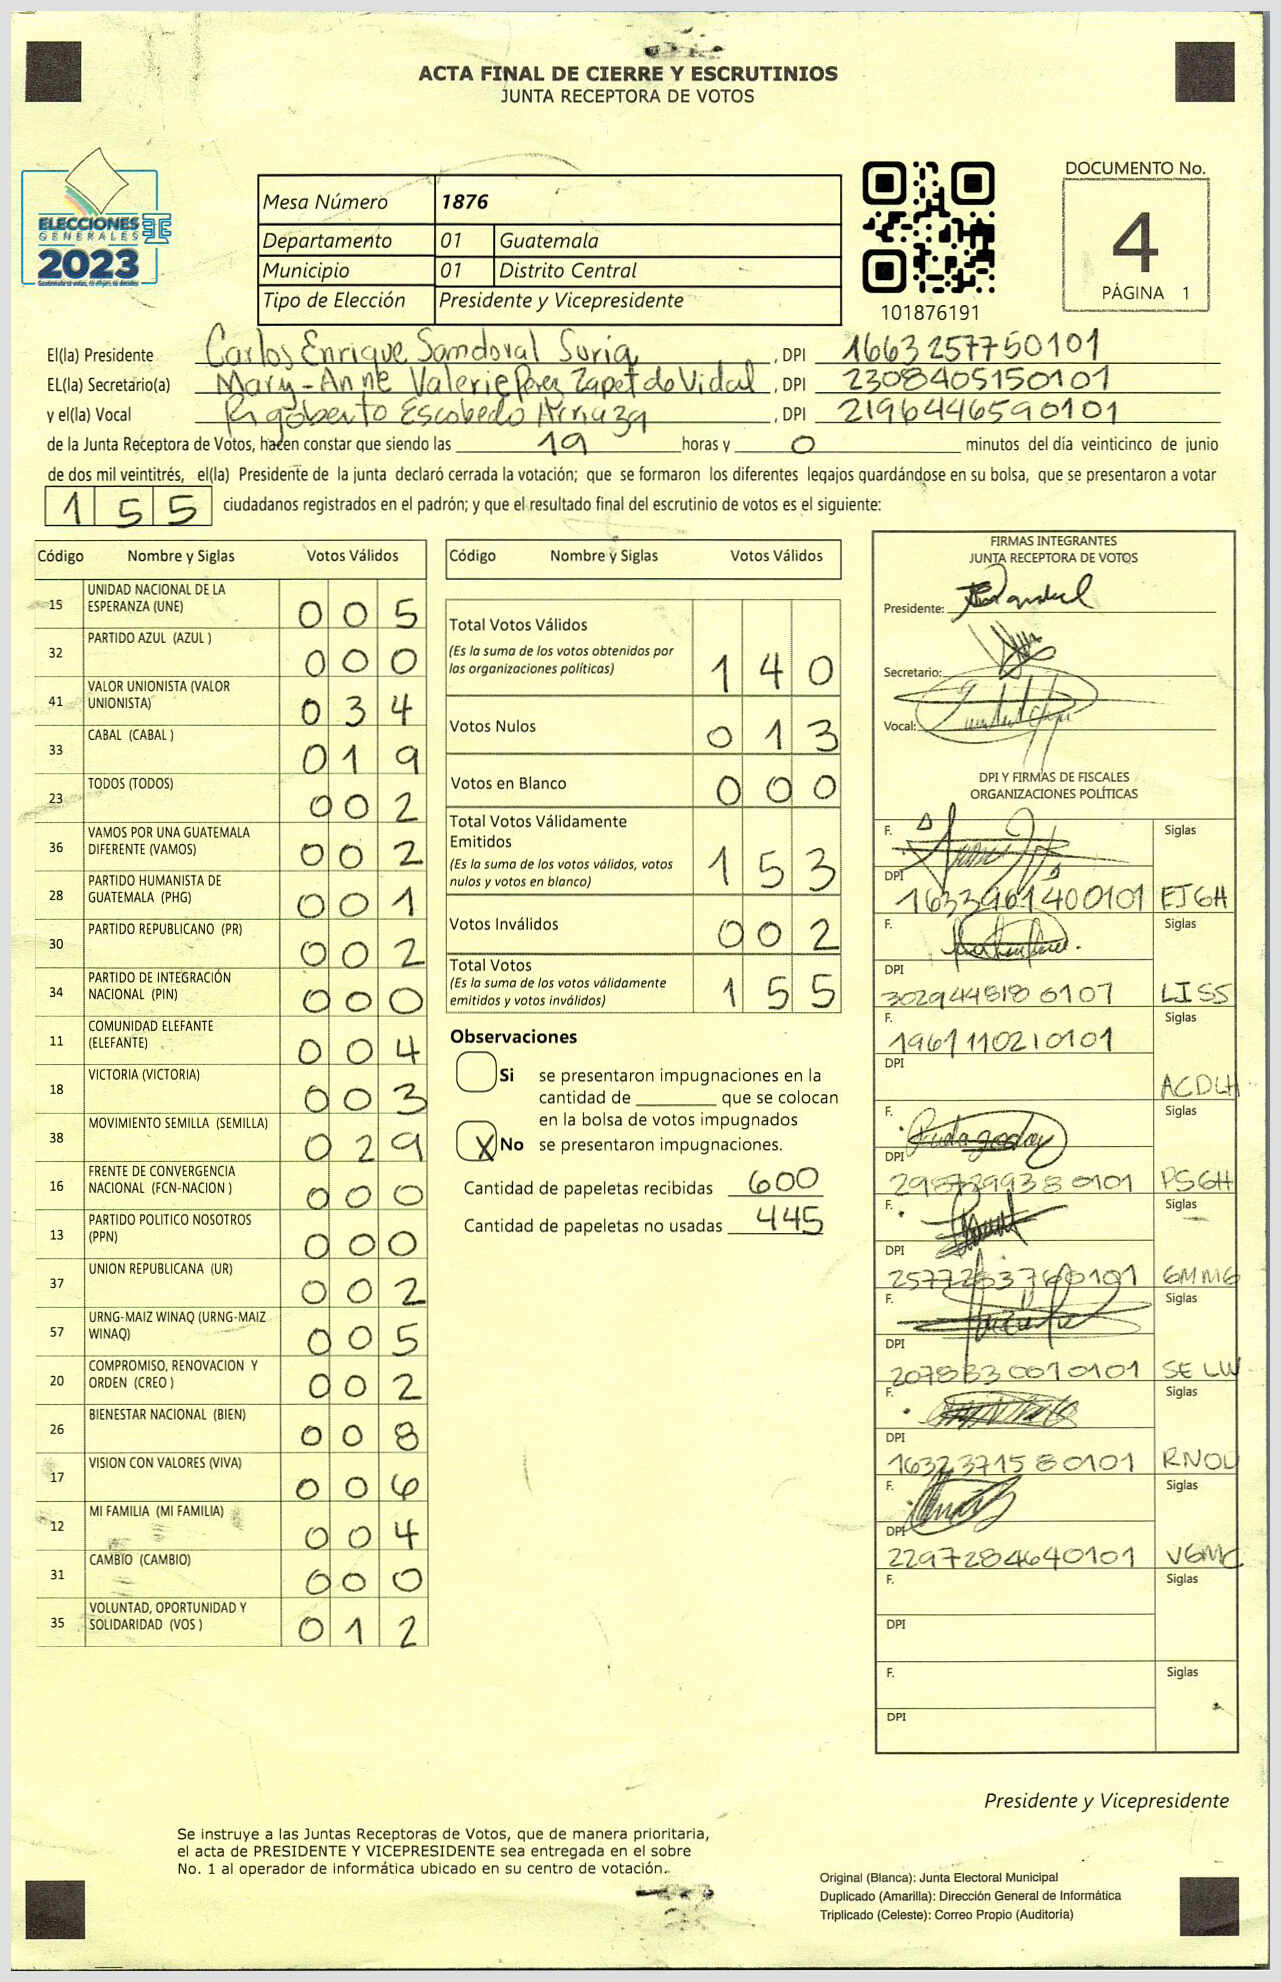 ACTA FINAL DE CIERRE Y ESCRUTINIOS
JUNTA RECEPTORA DE VOTOS
ELECCIONES
GENERALES
2023
Mesa Número 1876
Departamento 01 Guatemala
Municipio 01 Distrito Central
Tipo de Elección Presidente y Vicepresidente
101876191
DOCUMENTO No.
4
PÁGINA 1
El(la) Presidente Carlos Enrique Sandoval Suria, DPI 1663257750101
EL(la) Secretario(a) Mary-Anne Valerie Pérez Zapet de Vidal, DPI 2308405150101
y el(la) Vocal Rigoberto Escobedo, DPI 2196446590101
de la Junta Receptora de Votos, hacen constar que siendo las 19 horas y 0 minutos del día veinticinco de junio
de dos mil veintitrés, el(la) Presidente de la junta declaró cerrada la votación; que se formaron los diferentes legajos guardándose en su bolsa, que se presentaron a votar
155 ciudadanos registrados en el padrón; y que el resultado final del escrutinio de votos es el siguiente:
Código Nombre y Siglas Votos Válidos
15 UNIDAD NACIONAL DE LA
ESPERANZA (UNE) 005
32 PARTIDO AZUL (AZUL ) 000
41 VALOR UNIONISTA (VALOR
UNIONISTA) 034
33 CABAL (CABAL ) 019
23 TODOS (TODOS) 002
36 VAMOS POR UNA GUATEMALA
DIFERENTE (VAMOS) 002
28 PARTIDO HUMANISTA DE
GUATEMALA (PHG) 001
30 PARTIDO REPUBLICANO (PR) 002
34 PARTIDO DE INTEGRACIÓN
NACIONAL (PIN) 000
11 COMUNIDAD ELEFANTE
(ELEFANTE) 004
18 VICTORIA (VICTORIA) 003
38 MOVIMIENTO SEMILLA (SEMILLA) 029
16 FRENTE DE CONVERGENCIA
NACIONAL (FCN-NACION ) 000
13 PARTIDO POLITICO NOSOTROS
(PPN) 000
37 UNION REPUBLICANA (UR) 002
57 URNG-MAIZ WINAQ (URNG-MAIZ
WINAQ) 005
20 COMPROMISO, RENOVACION Y
ORDEN (CREO ) 002
26 BIENESTAR NACIONAL (BIEN) 008
17 VISION CON VALORES (VIVA) 006
12 MI FAMILIA (MI FAMILIA) 004
31 CAMBIO (CAMBIO) 000
35 VOLUNTAD, OPORTUNIDAD Y
SOLIDARIDAD (VOS ) 012
Código Nombre y Siglas Votos Válidos
Total Votos Válidos
(Es la suma de los votos obtenidos por
las organizaciones políticas) 140
Votos Nulos 013
Votos en Blanco 000
Total Votos Válidamente
Emitidos
(Es la suma de los votos válidos, votos
nulos y votos en blanco) 153
Votos Inválidos 002
Total Votos
(Es la suma de los votos válidamente
emitidos y votos inválidos) 155
Observaciones
Si se presentaron impugnaciones en la
cantidad de ________ que se colocan
en la bolsa de votos impugnados
X No se presentaron impugnaciones.
Cantidad de papeletas recibidas 600
Cantidad de papeletas no usadas 445
FIRMAS INTEGRANTES
JUNTA RECEPTORA DE VOTOS
Presidente:
Secretario:
Vocal:
DPI Y FIRMAS DE FISCALES
ORGANIZACIONES POLÍTICAS
F. Siglas
DPI
1633961400101 EJGH
F. Siglas
DPI
LISS
F. Siglas
1961110210101
DPI
ACDLH
F. Siglas
DPI
PSGH
F. Siglas
DPI
GMMG
F. Siglas
DPI
SELW
F. Siglas
DPI
1632371580101
F. Siglas
DPI
2297284640101 VGMC
F. Siglas
DPI
F. Siglas
DPI
Presidente y Vicepresidente
Se instruye a las Juntas Receptoras de Votos, que de manera prioritaria,
el acta de PRESIDENTE Y VICEPRESIDENTE sea entregada en el sobre
No. 1 al operador de informática ubicado en su centro de votación.
Original (Blanca): Junta Electoral Municipal
Duplicado (Amarilla): Dirección General de Informática
Triplicado (Celeste): Correo Propio (Auditoria)